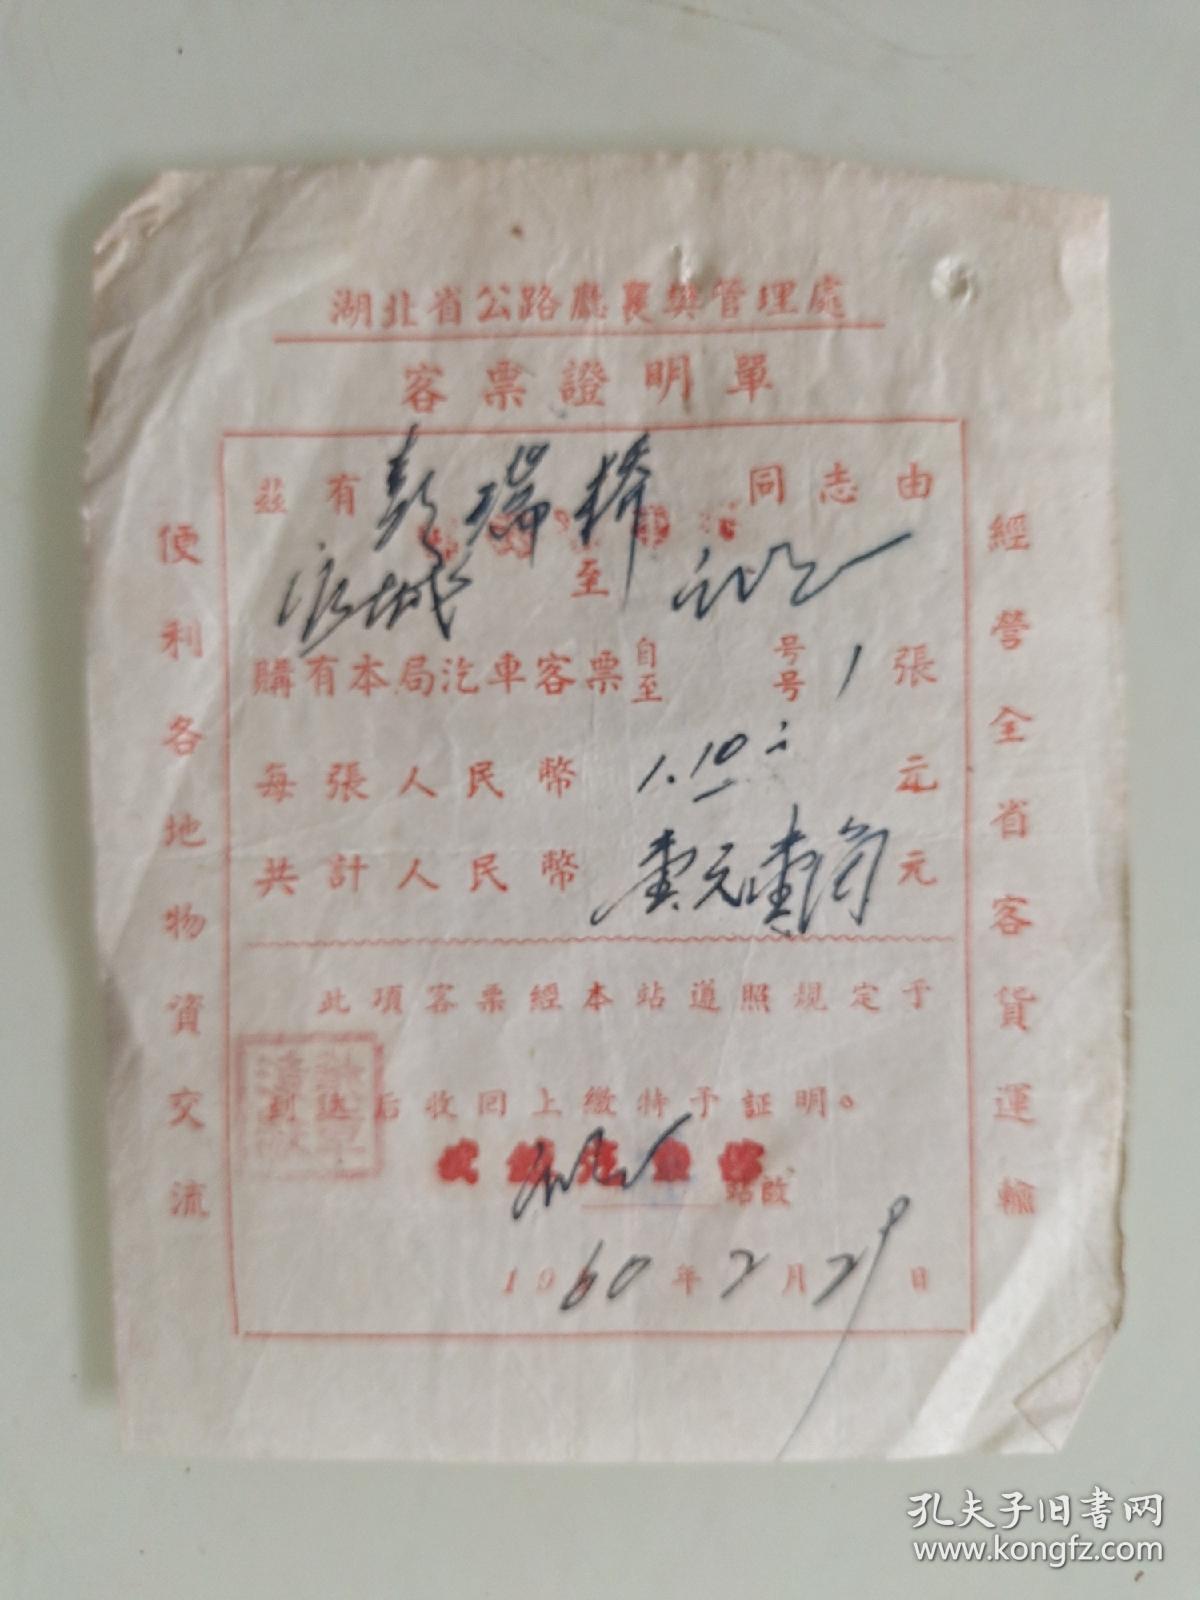 湖北省公路廳襄樊管理處
客票證明單
茲有彭瑞橋同志由
城至
購有本局汽車客票自至 号号 1 張
每張人民幣 1.10 元
共計人民幣 壹元壹角 元
此項客票經本站遵照規定于
后收回上繳特予証明。
站啟
1960年2月29日
便利各地物資交流
經營全省客貨運輸
孔夫子旧书网
www.kongfz.com